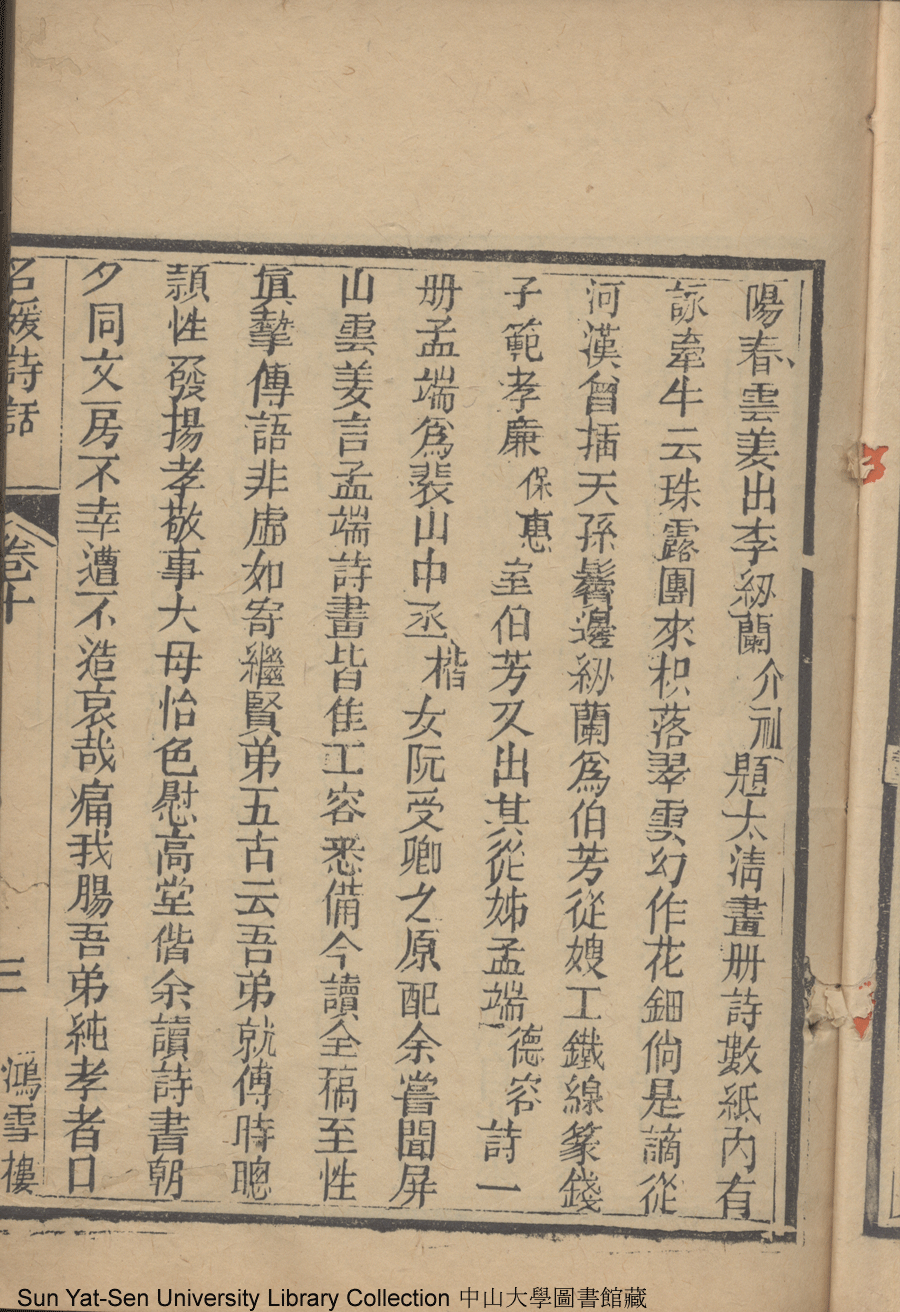 陽春雲姜出李紉蘭介祉題太淸畫册詩數紙內有
詠牽牛云珠露團來枳落翠雲幻作花鈿倘是謫從
河漢曾揷天孫鬢邊紉蘭爲伯芳從嫂工鐵線篆錢
子範孝廉保惠室伯芳又出其從姊孟端德容詩一
册孟端爲裴山中丞楷女阮受卿之原配余嘗聞屏
山雲姜言孟端詩畫皆佳工容悉備今讀全稿至性
眞摯傳語非虛如寄繼賢弟五古云吾弟就傅時聰
頴性發揚孝敬事大母怡色慰高堂偕余讀詩書朝
夕同文房不幸遭不造哀哉痛我腸吾弟純孝者口
名媛詩話 卷十 三 鴻雪樓
Sun Yat-Sen University Library Collection 中山大學圖書館藏